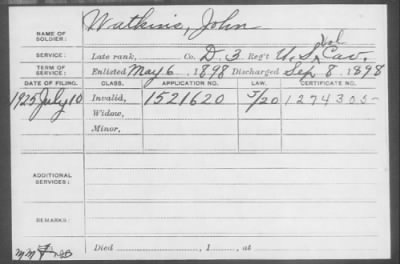 NAME OF SOLDIER: Watkins, John
SERVICE: Late rank, Co. D. 3 Reg't U.S. Vol Cav.
TERM OF SERVICE: Enlisted May 6, 1898 Discharged Sep 8, 1898
DATE OF FILING. CLASS. APPLICATION NO. LAW. CERTIFICATE NO.
1925 July 10 Invalid, 1521620 5/20 1274305
Widow,
Minor,
ADDITIONAL SERVICES:
REMARKS:
Died , 1 , at